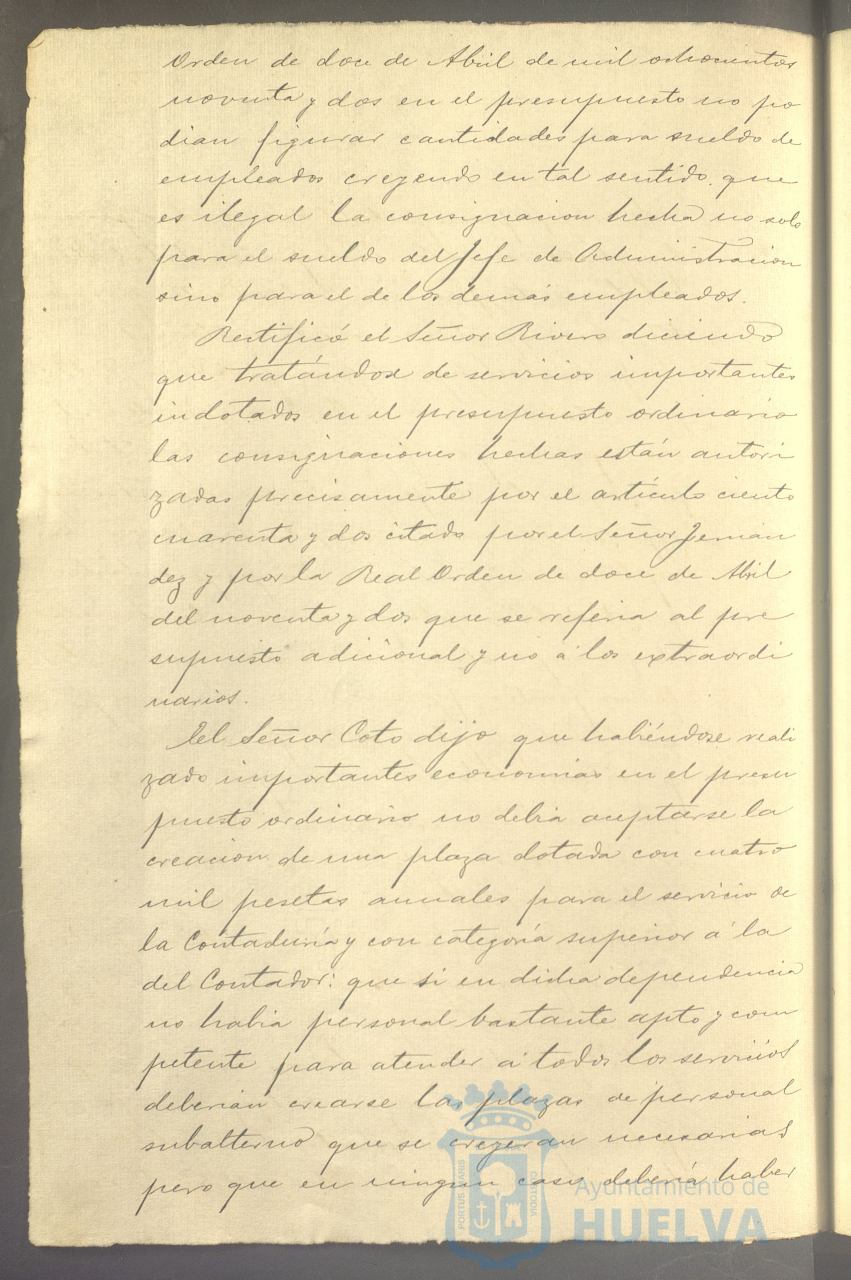 Orden de doce de Abril de mil ochocientos
noventa y dos en el presupuesto no po
dian figurar cantidades para sueldo de
empleados creyendo en tal sentido que
es ilegal la consignacion hecha no solo
para el sueldo del Jefe de Administracion
sino para el de los demás empleados.
Rectificó el Señor Rivero diciendo
que tratándose de servicios importantes
indotados en el presupuesto ordinario
las consignaciones hechas están autori
zadas precisamente por el artículo ciento
cuarenta y dos citado por el Señor Fernan
dez y por la Real Orden de doce de Abril
del noventa y dos que se referia al pre
supuesto adicional y no á los extraordi
narios.
El Señor Coto dijo que habiéndose reali
zado importantes economias en el presu
puesto ordinario no debia aceptarse la
creacion de una plaza dotada con cuatro
mil pesetas anuales para el servicio de
la Contaduría y con categoría superior á la
del Contador: que si en dicha dependencia
no habia personal bastante apto y com
petente para atender á todos los servicios
deberian crearse las plazas de personal
subalterno que se creyeran necesarias
pero que en ningun caso debería haber
PORTUS MARIS
CUSTODIA
Ayuntamiento de
HUELVA